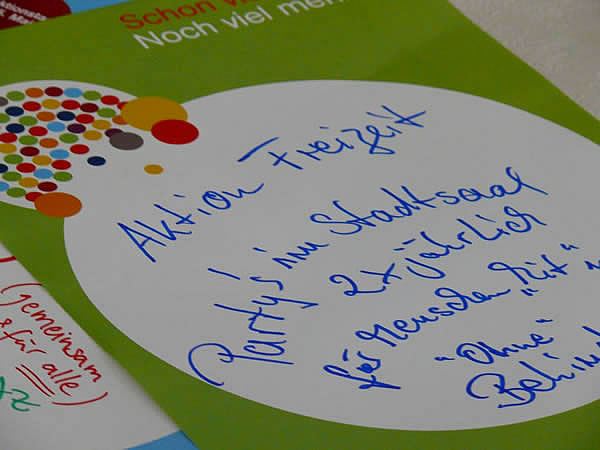 Schon
Noch viel meh
Aktion Freizeit
Party's im Stadtsaal
2x jährlich
für Menschen "Mit"
"Ohne"
Behind
(gemeinsam
& für alle)